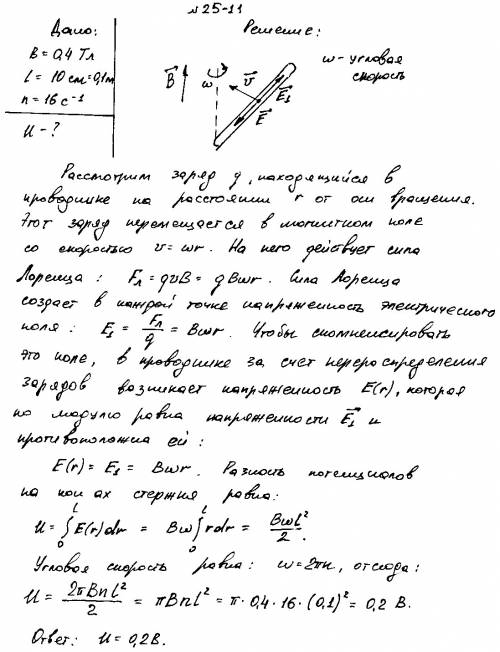 №25-11
Дано:
B = 0,4 Тл
l = 10 см = 0,1 м
n = 16 с⁻¹
U - ?
Решение:
ω - угловая
скорость
B⃗ ω v⃗ E⃗₁
E⃗
Рассмотрим заряд q, находящийся в
проводнике на расстоянии r от оси вращения.
Этот заряд перемещается в магнитном поле
со скоростью v = ωr. На него действует сила
Лоренца: Fл = qvB = qBωr. Сила Лоренца
создает в каждой точке напряженность электрического
поля: E₁ = Fл/q = Bωr. Чтобы скомпенсировать
это поле, в проводнике за счет перераспределения
зарядов возникает напряженность E(r), которая
по модулю равна напряженности E⃗₁ и
противоположна ей:
E(r) = E₁ = Bωr. Разность потенциалов
на кон ах стержня равна:
U = ∫₀ˡ E(r)dr = Bω ∫₀ˡ rdr = Bωl²/2.
Угловая скорость равна: ω = 2πn, отсюда:
U = 2πBnl²/2 = πBnl² = π · 0,4 · 16 · (0,1)² = 0,2 В.
Ответ: U = 0,2 В.